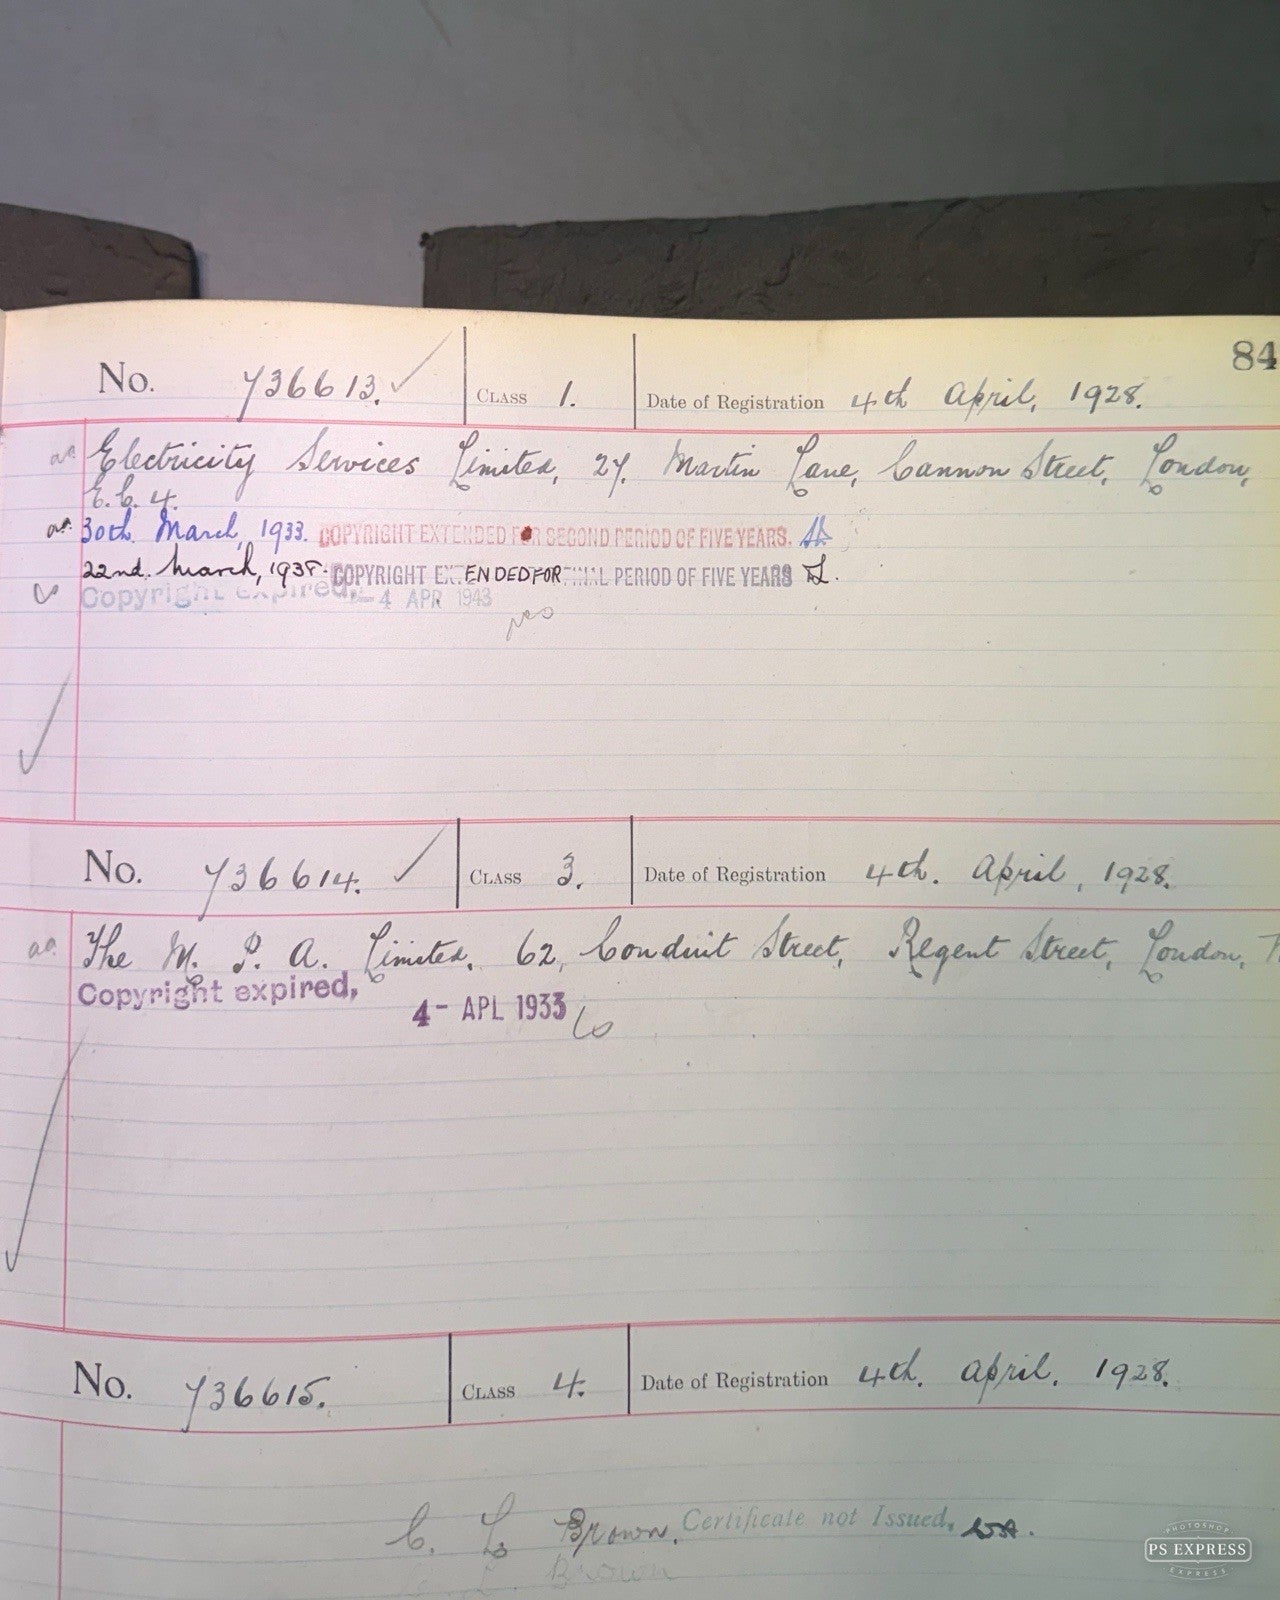 84
No. 736613. CLASS 1. Date of Registration 4th April, 1928.
aa Electricity Services Limited, 27, Martin Lane, Cannon Street, London,
E.C. 4.
30th. March, 1933. COPYRIGHT EXTENDED FOR SECOND PERIOD OF FIVE YEARS.
22nd. March, 1938. COPYRIGHT EXTENDED FOR FINAL PERIOD OF FIVE YEARS
Copyright expired, - 4 APR 1943
No. 736614. CLASS 3. Date of Registration 4th. April, 1928.
aa The M. P. A. Limited, 62, Conduit Street, Regent Street, London,
Copyright expired,
4 - APL 1933
No. 736615. CLASS 4. Date of Registration 4th. April, 1928.
C. L. Brown. Certificate not Issued.
Brown
PHOTOSHOP
PS EXPRESS
EXPRESS